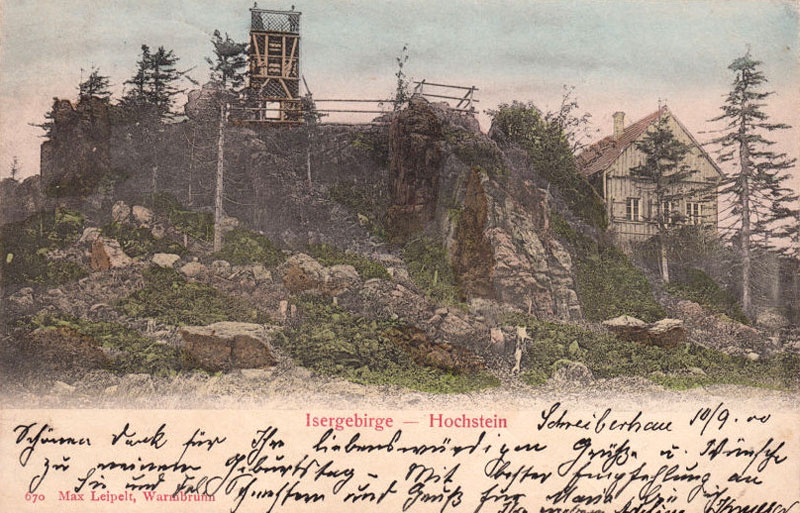 Isergebirge — Hochstein
Schreiberhau 10/9. 00
Schönen Dank für Ihre liebenswürdigen Grüße u. Wünsche
zu meinem Geburtstag. Mit bester Empfehlung an
Sie und Schwestern und Gruß für Maria
670 Max Leipelt, Warmbrunn